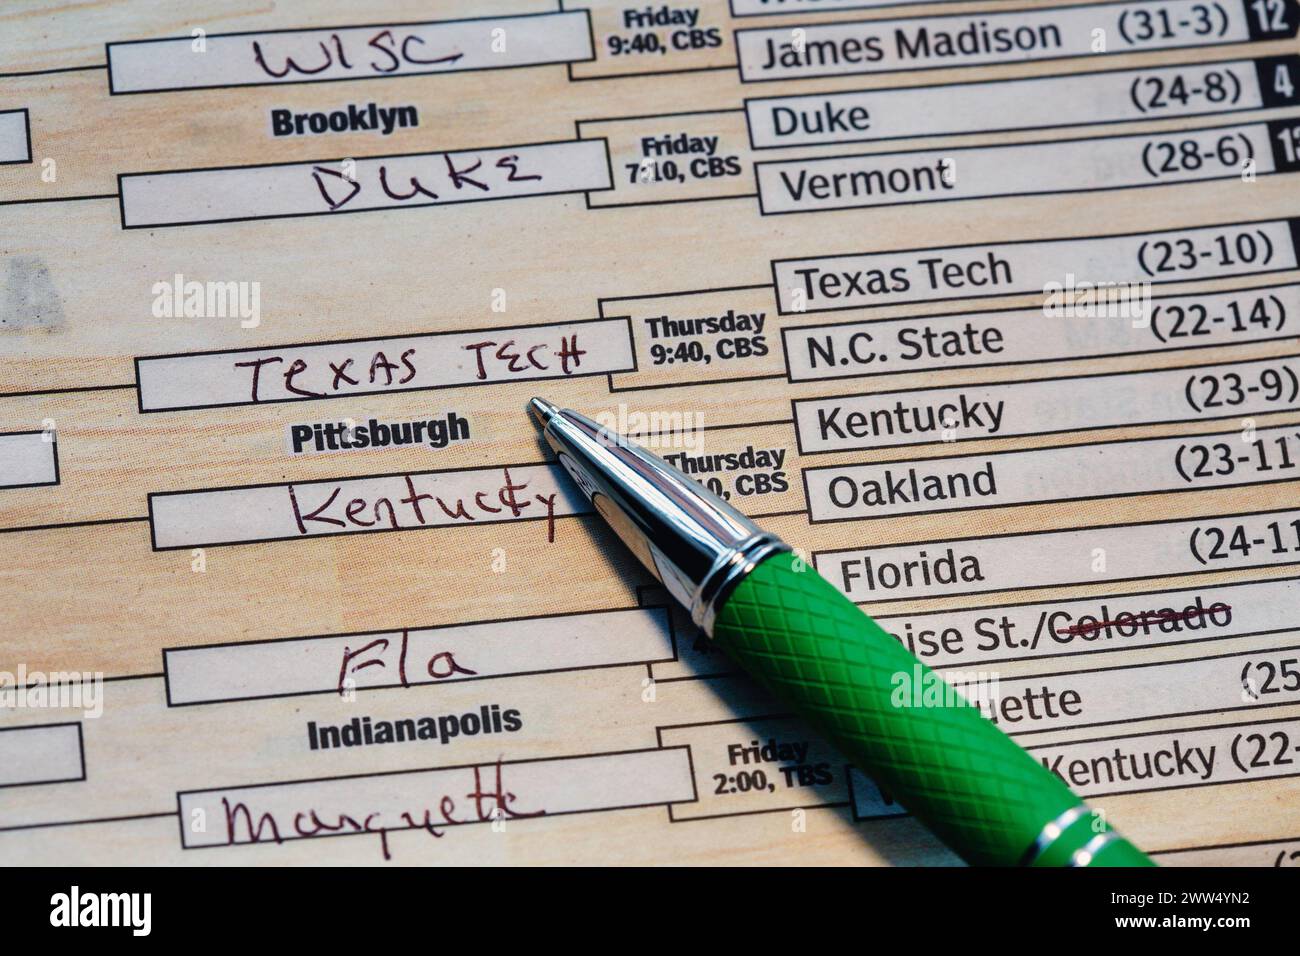 WISC
Friday
9:40, CBS
James Madison (31-3) 12
Brooklyn
Duke (24-8) 4
DUKE
Friday
7:10, CBS
Vermont (28-6)
Texas Tech (23-10)
TEXAS TECH
Thursday
9:40, CBS
N.C. State (22-14)
Pittsburgh
Kentucky (23-9)
Kentucky
Thursday
10, CBS
Oakland (23-11)
Florida (24-11
Fla
oise St./Colorado
Indianapolis
uette (25
Marquette
Friday
2:00, TBS
Kentucky (22-
alamy
Image ID: 2WW4YN2
www.alamy.com